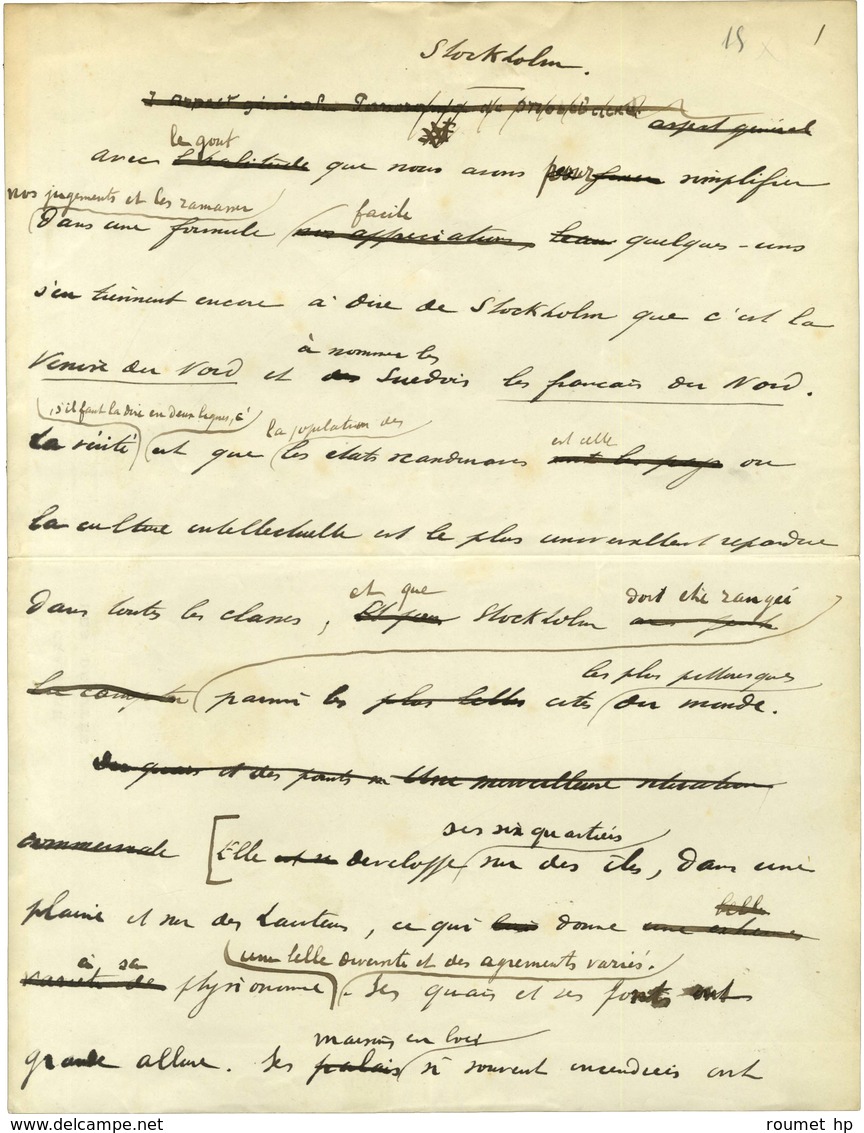 15 1
Stockholm.
aspect général
le gout
avec l'habitude que nous avons pour simplifier
nos jugements et les ramasser
facile
dans une formule nos appréciations, quelques-uns
s'en tiennent encore à dire de Stockholm que c'est la
à nommer les
Venise du Nord et des Suedois les français du Nord.
, s'il faut la dire en deux lignes, c'
la population des
est celle
La vérité est que les états scandinaves sont les pays ou
la culture intellectuelle est le plus universellement repandue
et que
doit etre rangée
dans toutes les classes, Stockholm
les plus pittoresques
parmi les plus belles cités du monde.
des quais et des ponts Une merveilleuse situation
ses six quartiers
commerciale [Elle est developpe sur des îles, dans une
belle
plaine et sur des hauteurs, ce qui lui donne une
une belle diversite et des agrements variés.
à sa
varieté de physionomie. Ses quais et ses ponts ont
maisons en bois
grande allure. Ses palais si souvent incendiées ont
roumet hp